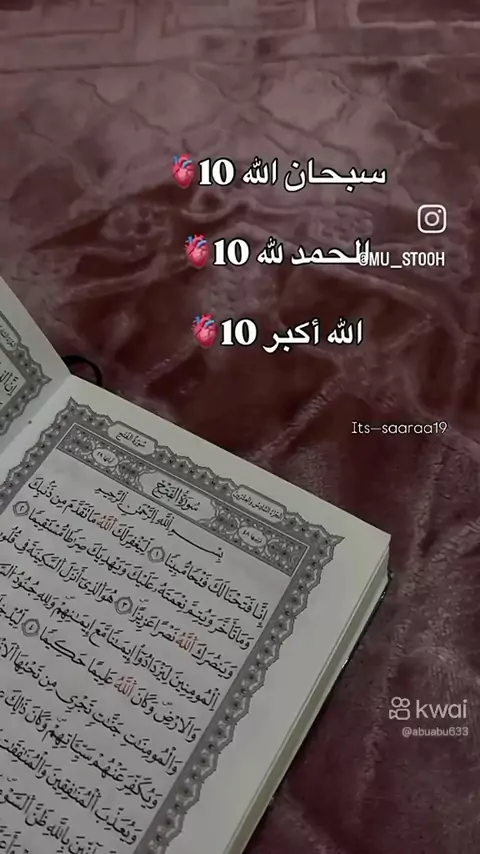 سبحان الله 10🫀
الحمد لله 10🫀
@MU_STOOH
الله أكبر 10🫀
Its-saaraa19
سورة الفتح
سورة الفتح
بسم الله الرحمن الرحيم
إنا فتحنا لك فتحا مبينا ١ ليغفر لك الله ما تقدم من ذنبك
وما تأخر ويتم نعمته عليك ويهديك صراطا مستقيما ٢
وينصرك الله نصرا عزيزا ٣ هو الذي أنزل السكينة في قلوب
المؤمنين ليزدادوا إيمنا مع إيمنهم ولله جنود
والأرض وكان الله عليما حكيما ٤ ليدخل
والمؤمنت جنت تجري من تحتها
ويكفر عنهم سيئاتهم وكان ذلك
ويعذب المنفقين والمنفقت
بالله ظن السوء
kwai
@abuabu633